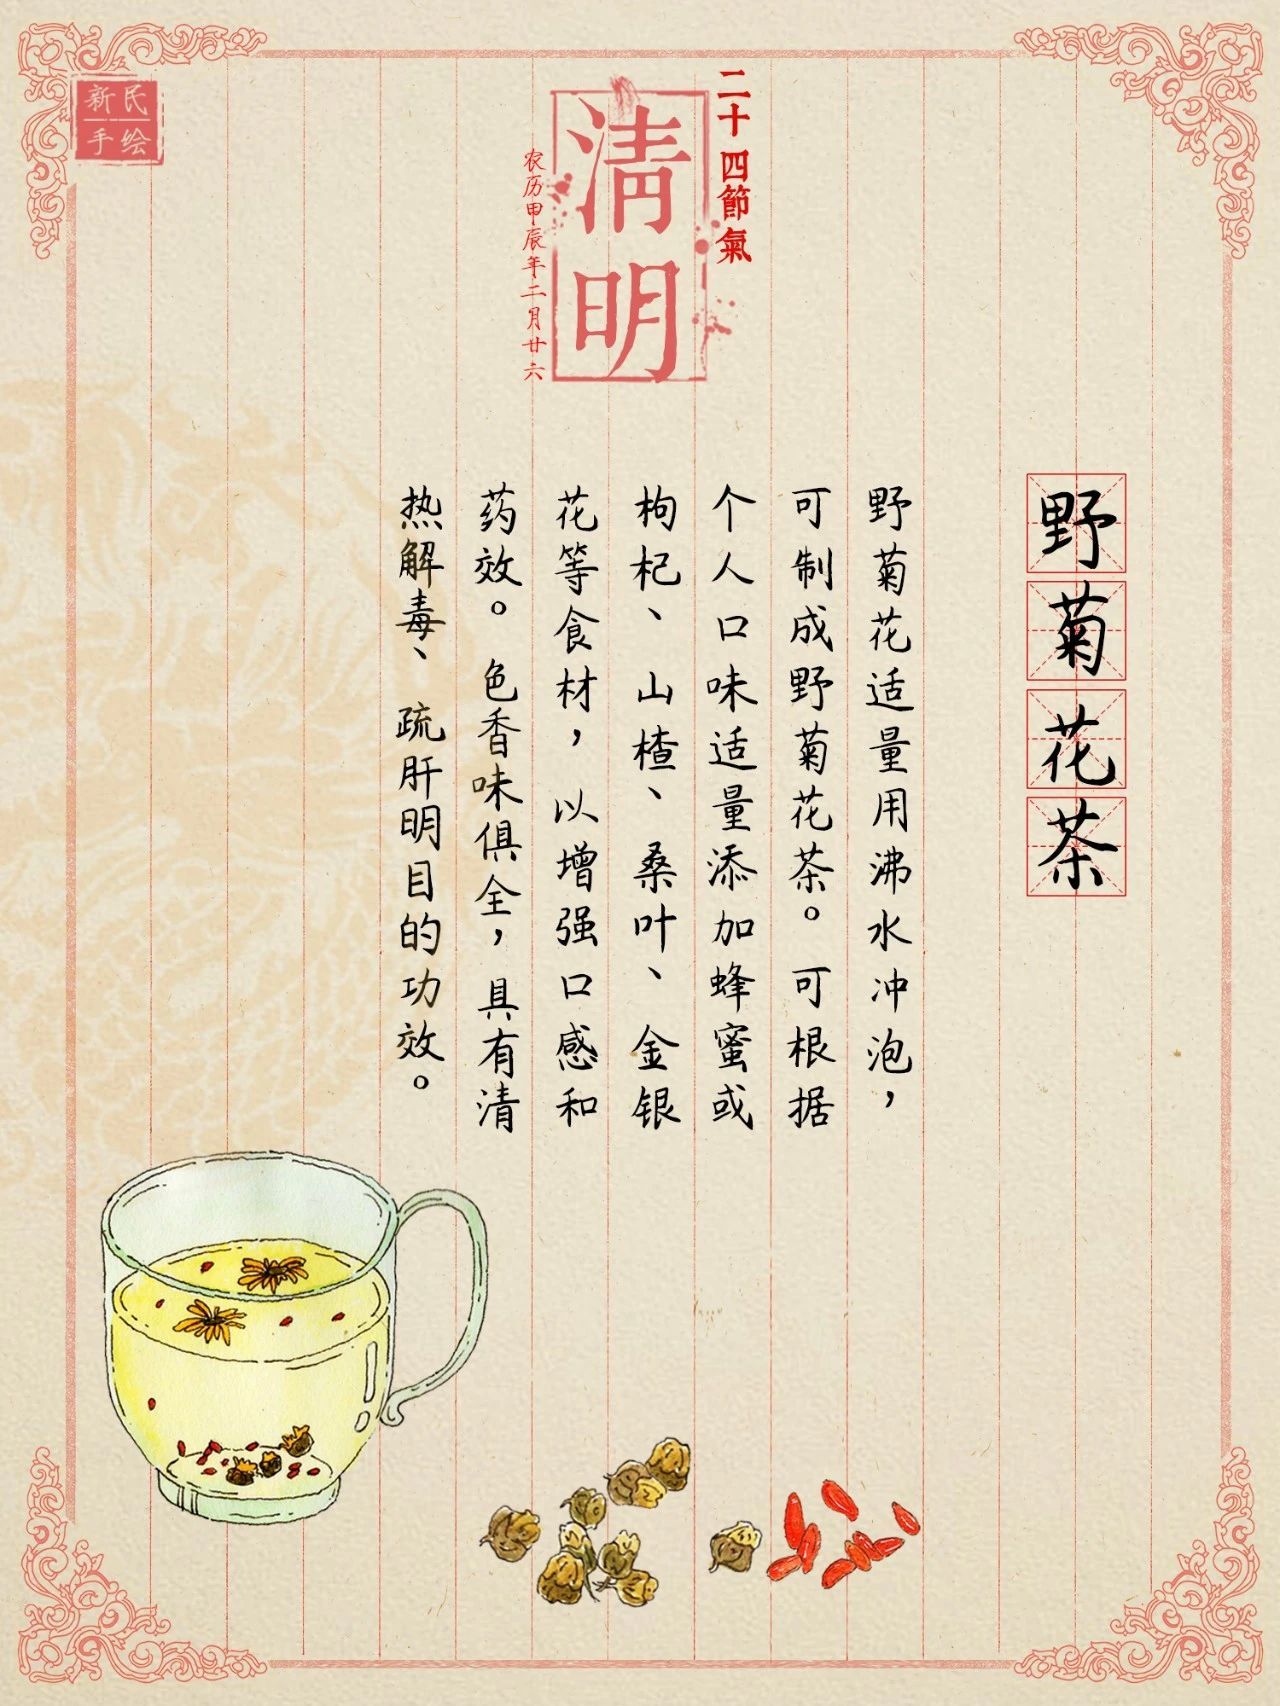 新民
手绘
二十四節氣
淸明
农历甲辰年二月廿六
野菊花茶
野菊花适量用沸水冲泡，
可制成野菊花茶。可根据
个人口味适量添加蜂蜜或
枸杞、山楂、桑叶、金银
花等食材，以增强口感和
药效。色香味俱全，具有清
热解毒、疏肝明目的功效。